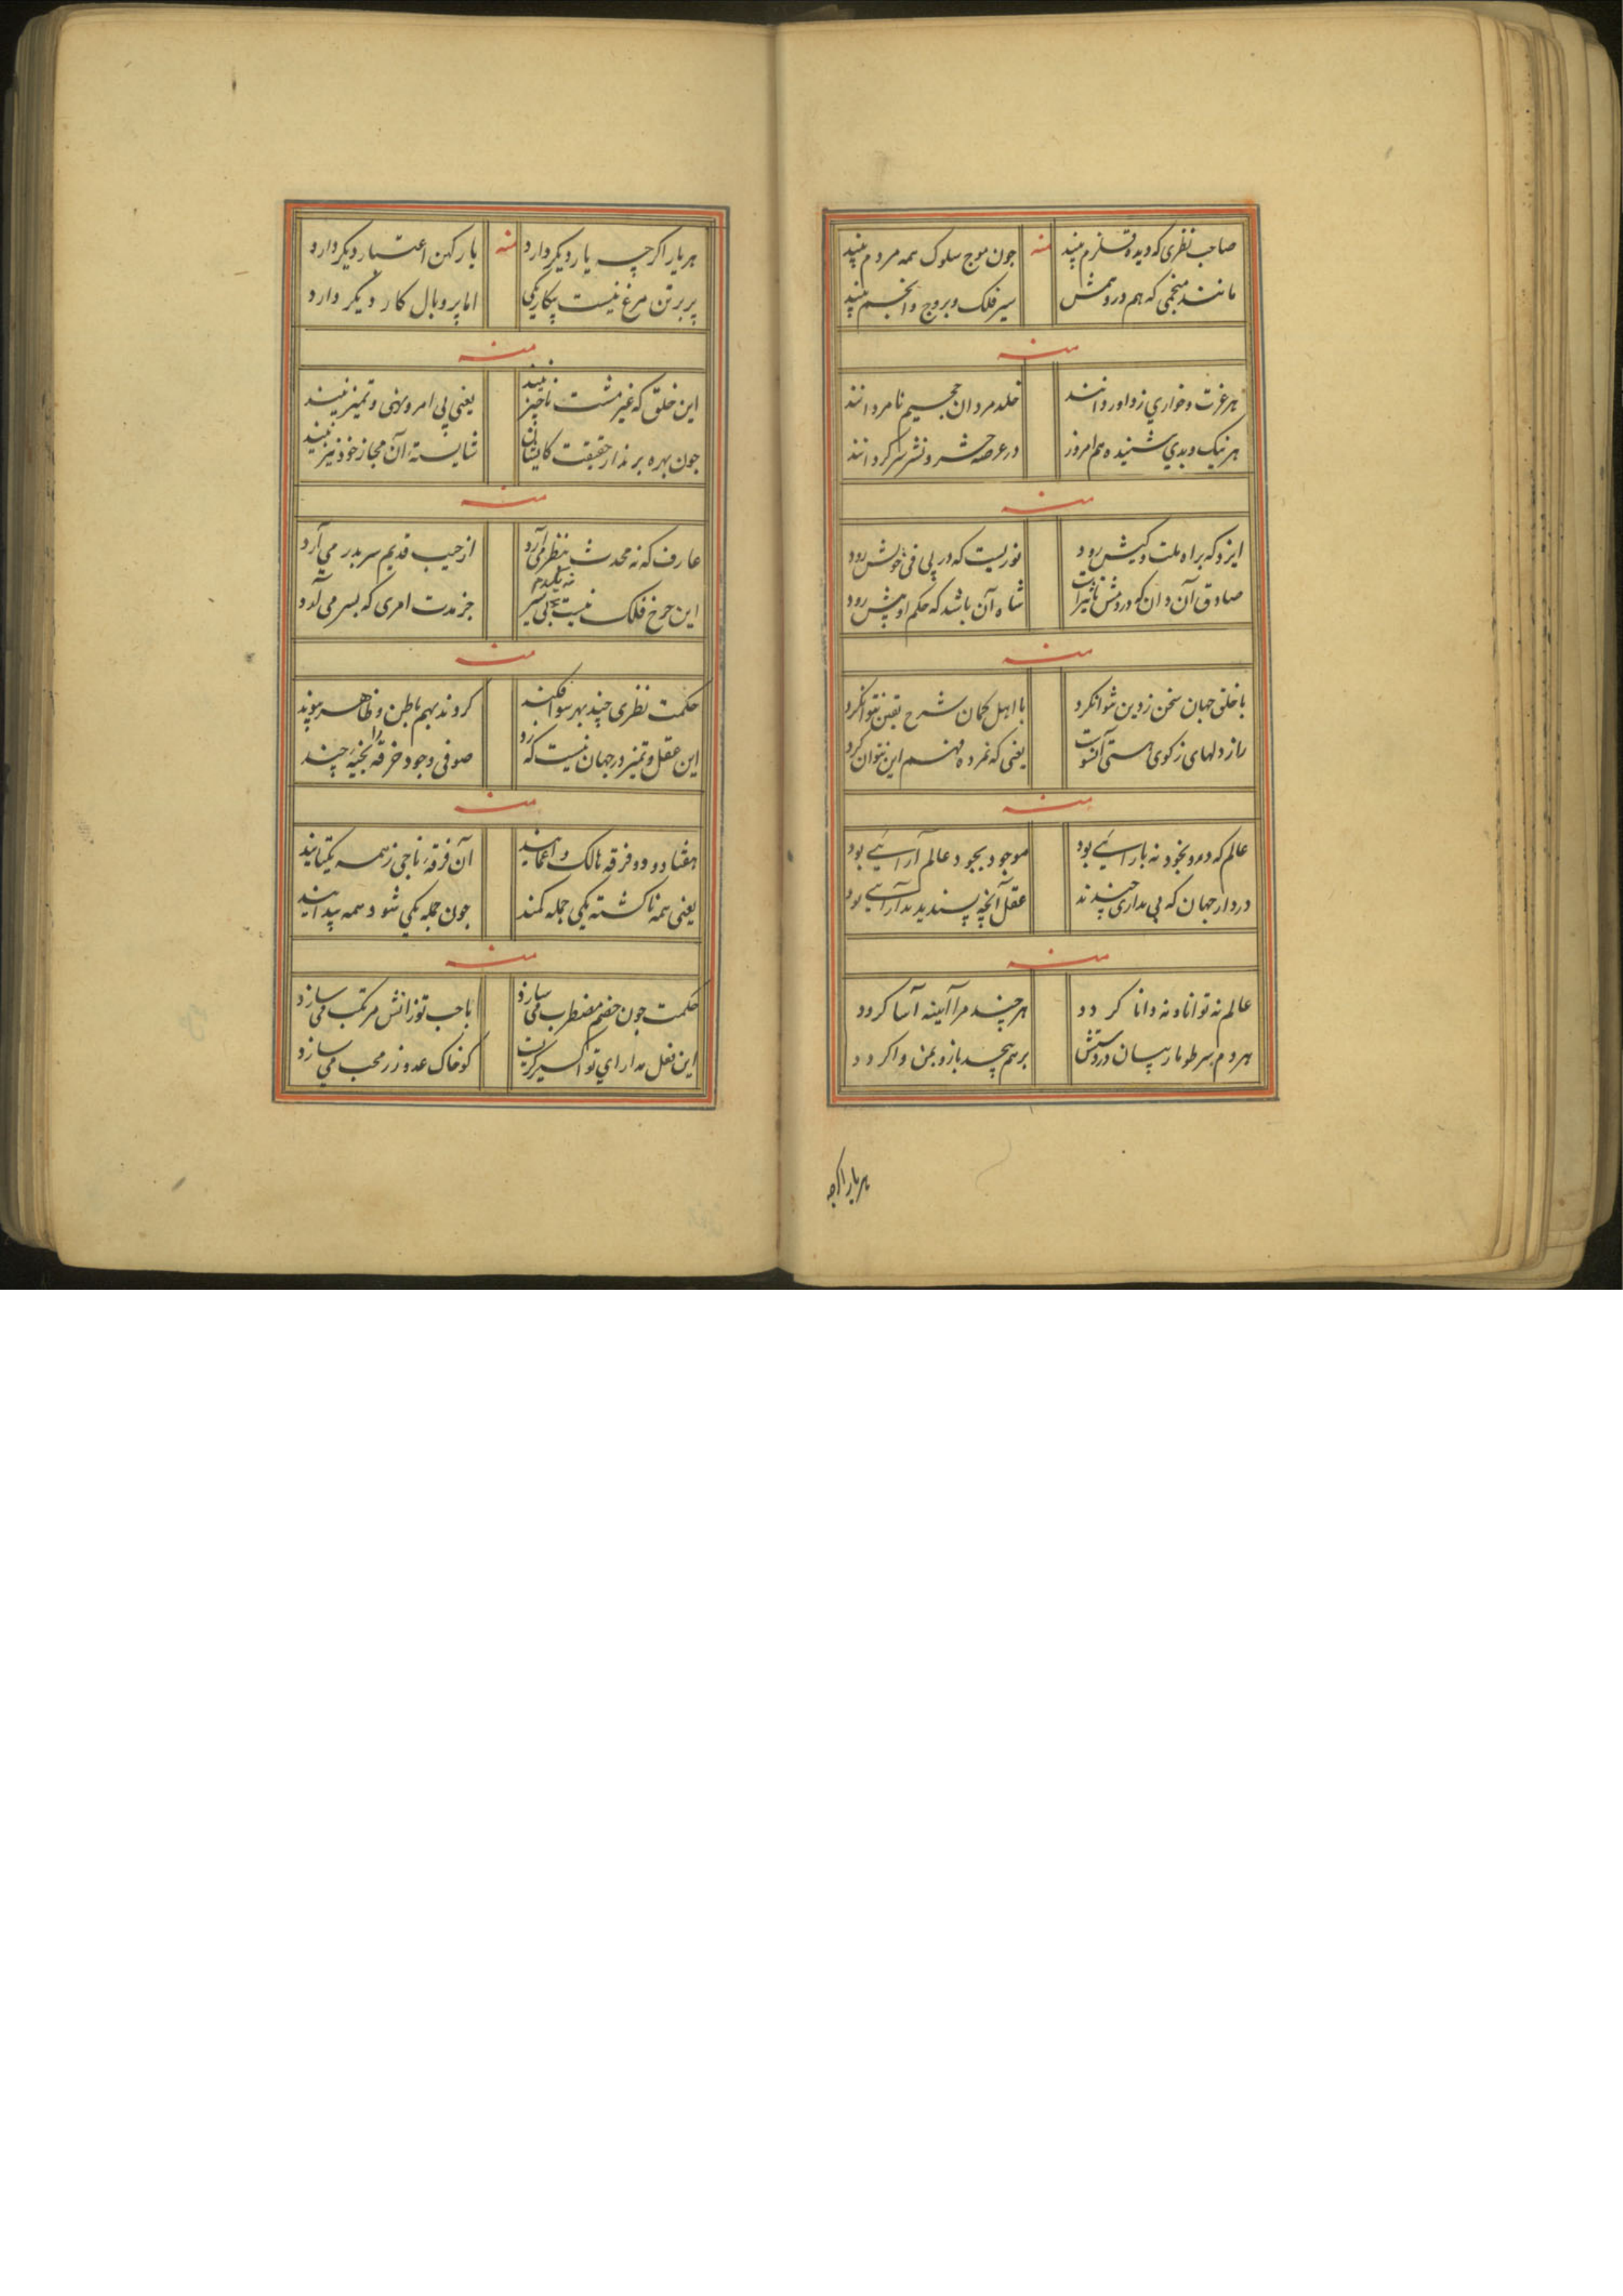 صاحب نظری که دیده قلزم بیند منه چون موج سلوک همه مردم بیند
مانند منجمی که هم در و مش سیر فلک و بروج و انجم بیند
منه
هر عزت و خواری ز داور دانند خلد مردان جحیم نامرد انند
هر نیک و بدی شنیده هم امروز در عرصه حشر و نشر سر کردانند
منه
ایزد که براه ملت و کیش رود نوریست که در پی فی خویش رود
صادق آن دان که در دمش تاثیر است شاه آن باشد که حکم او پیش رود
منه
با خلق جهان سخن ز دین نتوانکرد با اهل کمان شرح یقین نتوانکرد
راز دلهای ز کوی هستی آنسوست یعنی که نمرده فهم این نتوان کرد
منه
عالم که بود بخود نه بارائی بود موجود بجود عالم آرائی بود
در دار جهان که بی مداری چندند عقل آنچه پسندید بدآرائی بود
منه
عالم نه توانا و نه دانا کردد هر چند مرا آیینه آسا کردد
هر دم بسر طومار بسان در دستش بر هم پیچد باز و بمن وا کردد
هر یار اکرچه
هر یار اکر چه یار دیکر دارد منه یار کهن اعتبار دیکر دارد
پر بر تن مرغ نیست بیکار یکی اما پر و بال کار دیکر دارد
منه
این خلق که غیر مشت ناچیز نیند یعنی پی امر و نهی و تمیز نیند
چون بهره برند از حقیقت کایشان شایسته آن مجاز خود نیز نیند
منه
عارف که نه محدث بنظر می آرد از جیب قدیم سر بدر می آرد
این چرخ فلک نیست نه یکدم بی سیر جز مدت امری که بسر می آرد
منه
حکمت نظری چند بهر سو افکند کردند بهم باطن و ظاهر پیوند
این عقل و تمیز در جهان نیست که رد صوفی وجود خرقه را بخیه چند
منه
هفتاد و دو فرقه هالک و اعمایند آن فرقه ناجی ز همه یکتایند
یعنی همه ناکشته یکی جمله کمند چون جمله یکی شود همه پیدایند
منه
حکمت چون خصم مضطرب می سازد با حب تو زانش مرتکب می سازد
این نقل مدارای تو اکسیر کریست کو خاک عدو زر محب می سازد